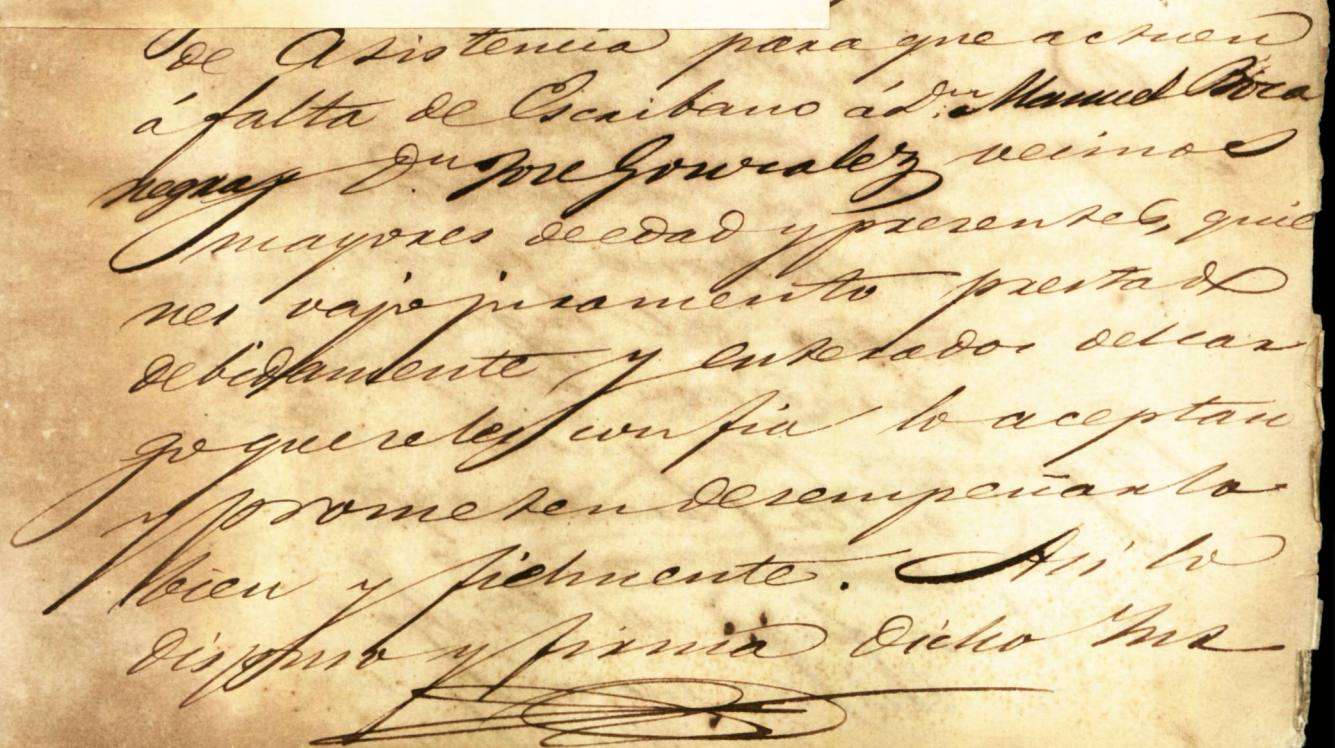 de Asistencia para que actuen
á falta de Escribano á Dn. Manuel Boca
negra y Dn. Jose Gonzalez vecinos
mayores de edad y presentes, quie
nes vajo juramento prestado
debidamente y enterados del car
go que se les confia lo aceptan
y prometen desempeñarlo
bien y fielmente. Asi lo
dispuso y firma dicho